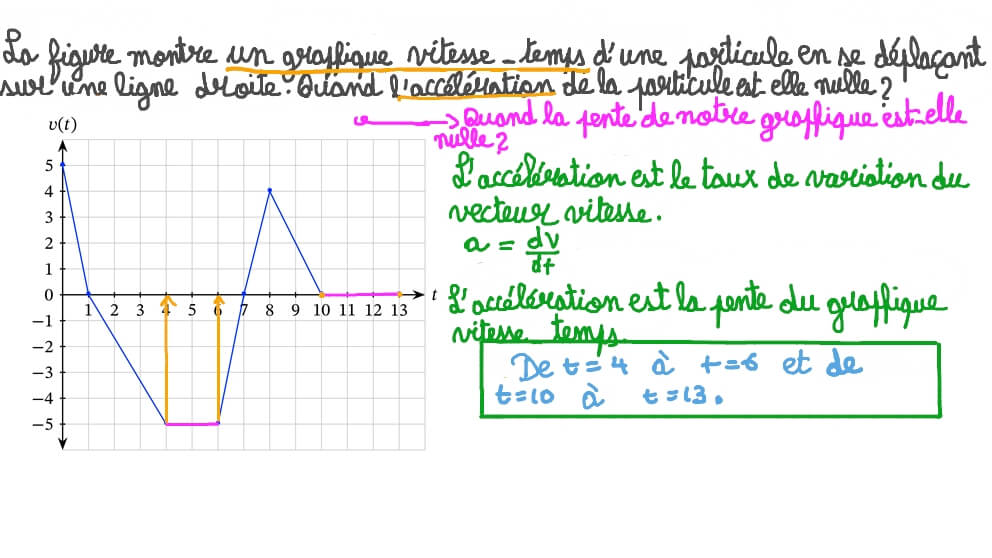 La figure montre un graffique vitesse_temps d'une particule en se déplaçant
sur une ligne droite. Quand l'accélération de la particule est elle nulle?
Quand la pente de notre graffique est-elle
nulle?
v(t)
L'accélération est le taux de variation du
vecteur vitesse.
a = dv/dt
L'accélération est la pente du graffique
vitesse_temps.
De t=4 à t=6 et de
t=10 à t=13.
5
4
3
2
1
0
1 2 3 4 5 6 7 8 9 10 11 12 13 t
−1
−2
−3
−4
−5